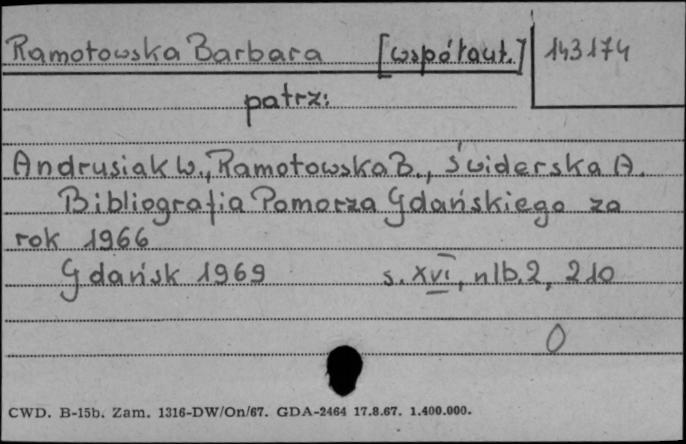 Ramotowska Barbara [współaut.] 143174
patrz:
Andrusiak W., Ramotowska B., Świderska A.
Bibliografia Pomorza Gdańskiego za
rok 1966
Gdańsk 1969 s. XVI, nlb. 2, 210
0
CWD. B-15b. Zam. 1316-DW/On/67. GDA-2464 17.8.67. 1.400.000.